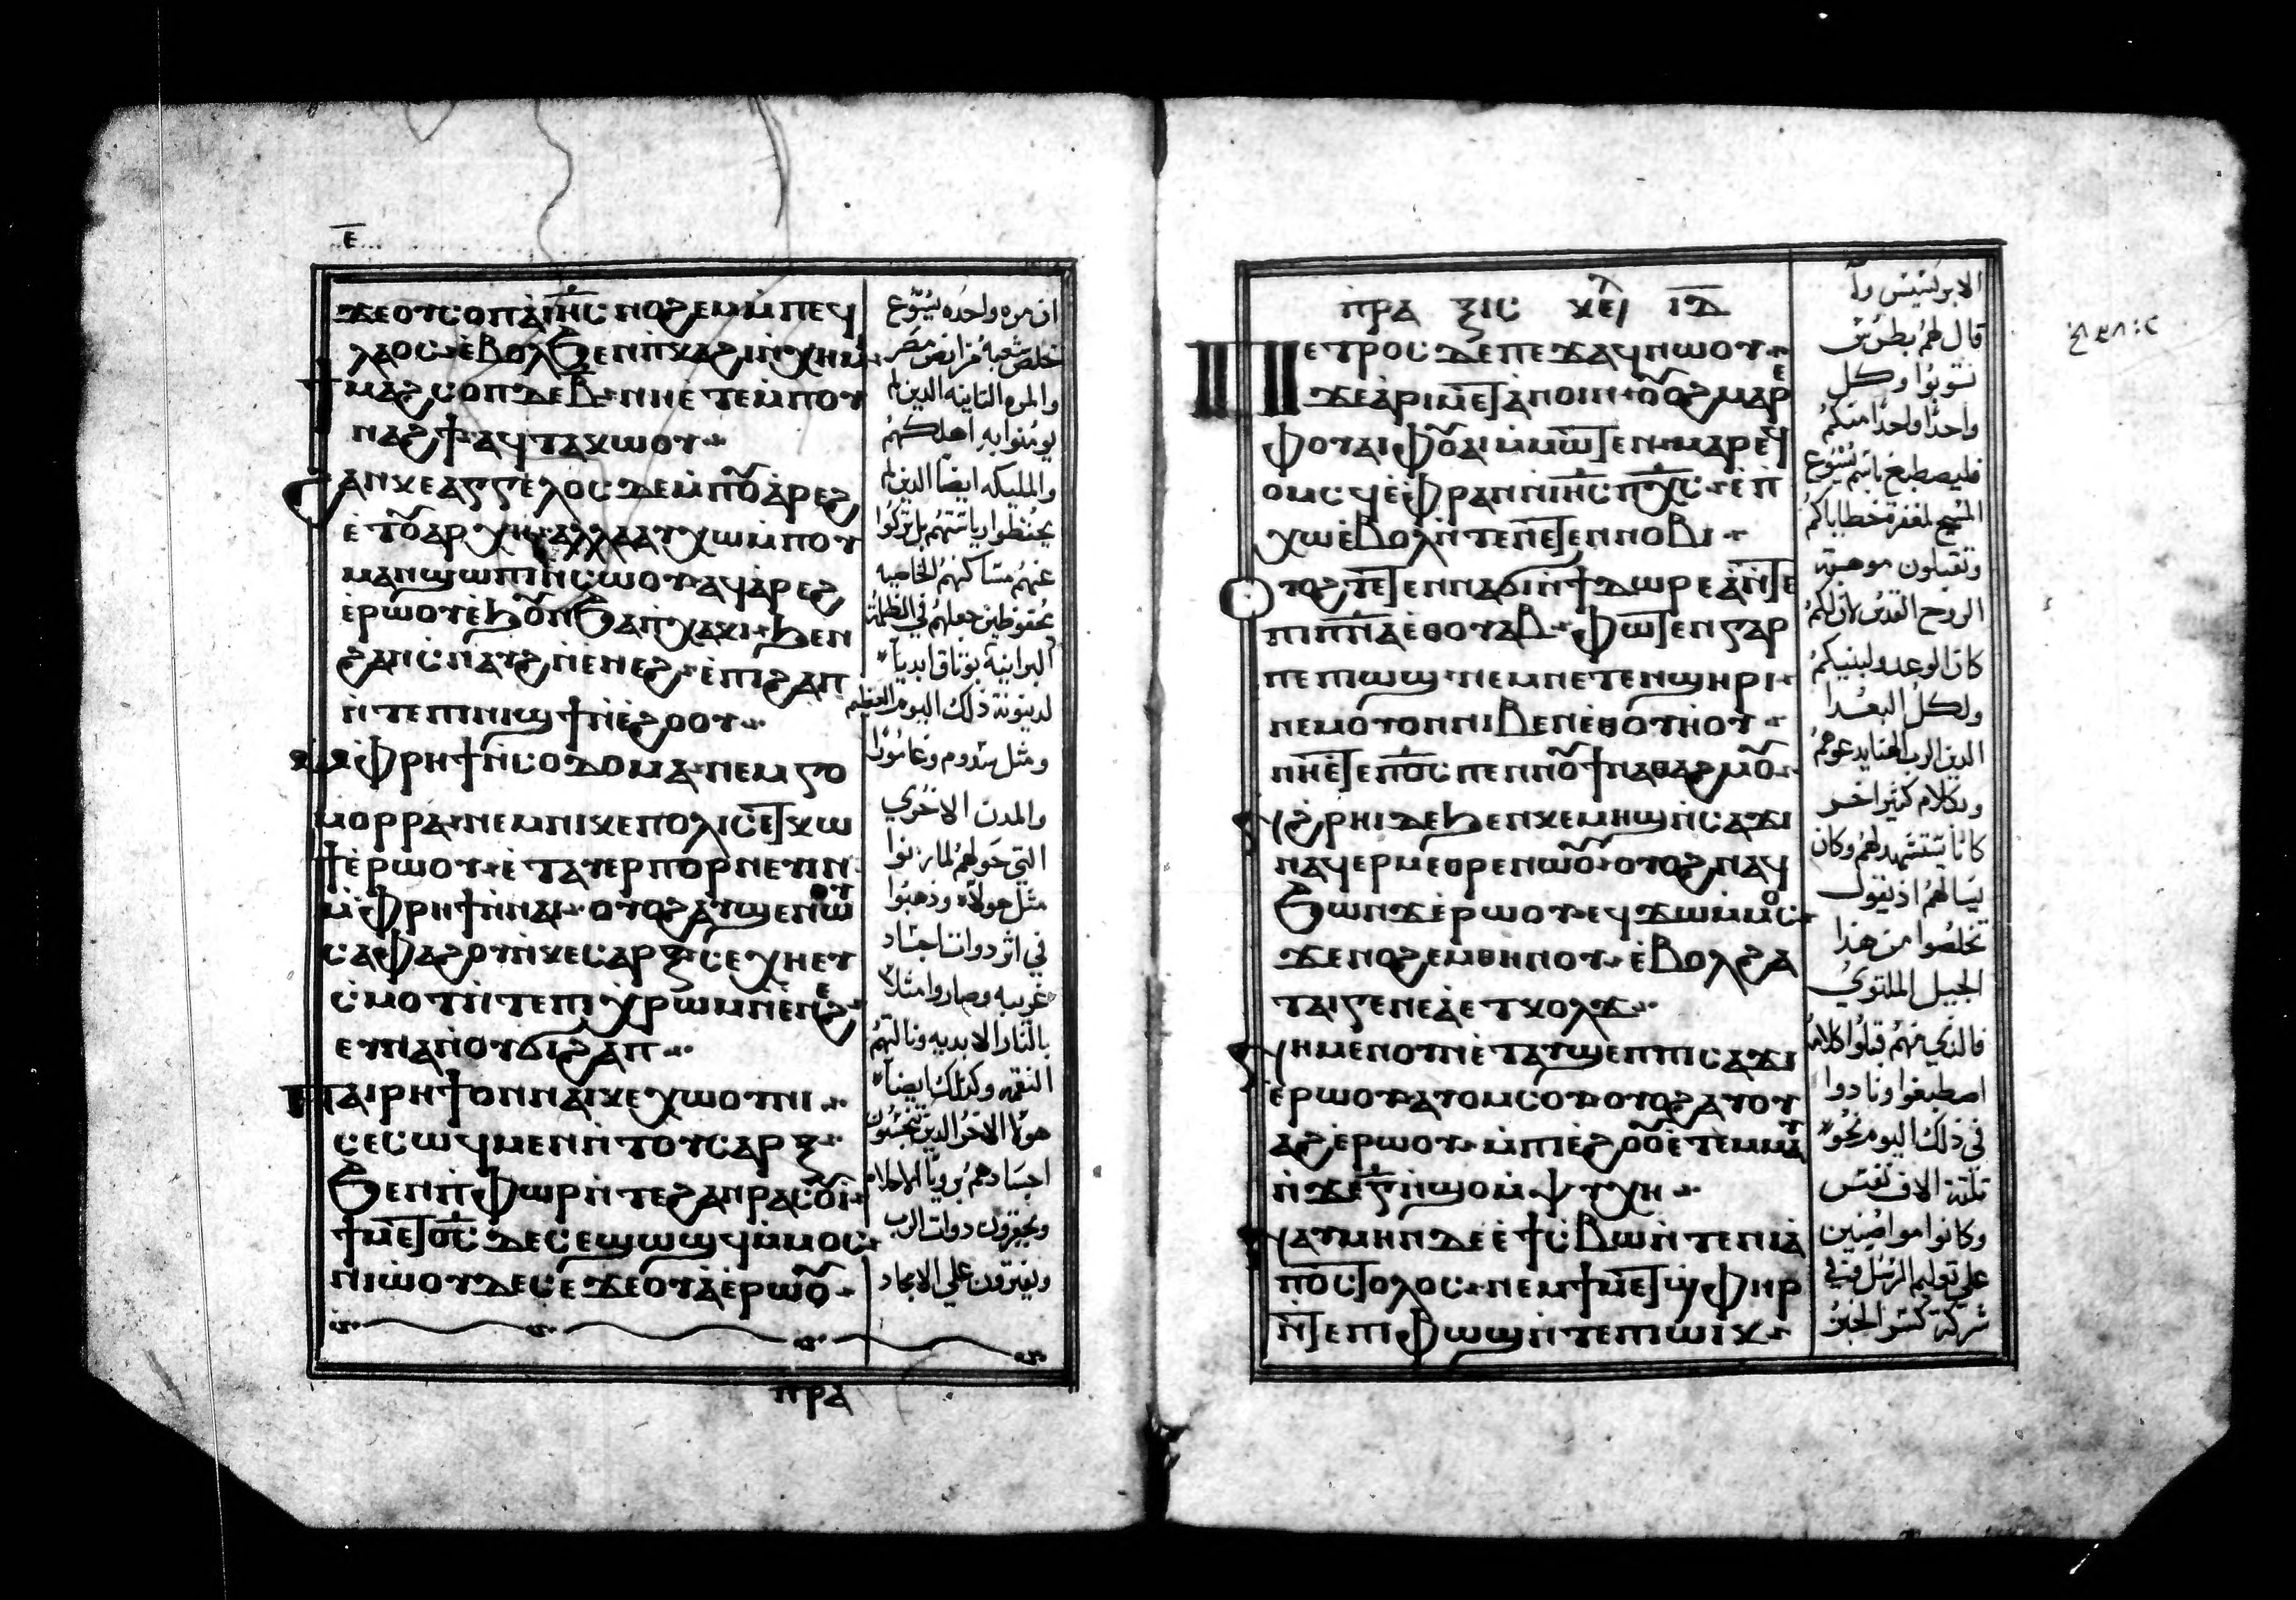 ⲉ̅
ϫⲉⲟⲩⲥⲟⲡⲁⲓⲏ̅ⲥ̅ ⲛⲟϩⲉⲙⲙ̀ⲡⲉϥ
ⲗⲁⲟⲥ ⲉ̀ⲃⲟⲗϧⲉⲛⲡ̀ⲕⲁϩⲓⲛ̀ⲭⲏⲙⲓ
ⲙⲁϩⲥⲟⲡⲇⲉⲃ̅ ⲛⲏⲉ̀ⲧⲉⲙ̀ⲡⲟⲩ
ⲛⲁϩϯ ⲁϥⲧⲁⲕⲱⲟⲩ
ϩⲁⲛⲕⲉⲁⲅⲅⲉⲗⲟⲥ ⲇⲉⲙ̀ⲡⲟⲩⲁ̀ⲣⲉϩ
ⲉ̀ⲧⲟⲩⲁⲣⲭⲏ ⲁⲗⲗⲁⲁⲩⲭⲱⲙ̀ⲡⲟⲩ
ⲙⲁⲛϣⲱⲡⲓⲛ̀ⲥⲱⲟⲩ ⲁϥⲁ̀ⲣⲉϩ
ⲉ̀ⲣⲱⲟⲩⲉ̀ϧⲟⲩⲛϧⲁⲡ̀ⲭⲁⲕⲓ ϧⲉⲛ
ϩⲁⲛⲥ̀ⲛⲁⲩϩ ⲛ̀ⲉⲛⲉϩ ⲉ̀ⲡⲓϩⲁⲡ
ⲛ̀ⲧⲉⲡⲓⲛⲓϣϯⲛ̀ⲉ̀ϩⲟⲟⲩ
ⲙ̀ⲫⲣⲏϯⲛ̀ⲥⲟⲇⲟⲙⲁ ⲛⲉⲙⲅⲟ
ⲙⲟⲣⲣⲁ ⲛⲉⲙⲛⲓⲕⲉⲡⲟⲗⲓⲥ ⲉⲧⲕⲱ
ϯⲉ̀ⲣⲱⲟⲩ ⲉ̀ⲧⲁⲩⲉⲣⲡⲟⲣⲛⲉⲩⲓⲛ
ⲙ̀ⲫⲣⲏϯⲛ̀ⲛⲁⲓ ⲟⲩⲟϩⲁⲩϣⲉⲛⲱⲟⲩ
ⲥⲁⲫⲁϩⲟⲩⲛ̀ⲕⲉⲥⲁⲣⲝ ⲥⲉⲭⲏⲉⲩ
ⲥ̀ⲙⲟⲧⲛ̀ⲧⲉⲡⲓⲭⲣⲱⲙⲛ̀ⲉⲛⲉϩ
ⲉⲩⲛⲁⲛⲟⲩϭⲓϩⲁⲡ
ⲡⲁⲓⲣⲏϯⲟⲛⲛⲁⲓⲕⲉⲭⲱⲟⲩⲛⲓ
ⲥⲉⲥⲱϥⲙⲉⲛⲛ̀ⲧⲟⲩⲥⲁⲣⲝ
ϧⲉⲛⲡ̀ⲫⲱⲣⲛ̀ⲧⲉϩⲁⲛⲣⲁⲥⲟⲩⲓ
ϯⲙⲉⲧⲟ̅ⲥ̅ ⲇⲉⲥⲉϣⲱϣϥⲙ̀ⲙⲟⲥ
ⲛⲓⲱ̀ⲟⲩⲇⲉⲥⲉϫⲉⲟⲩⲁ̀ⲉ̀ⲣⲱⲟⲩ
ان مره واحده يسوع
خلص شعبه من ارض مصر
والمره الثانيه الدين لم
يومنوا به اهلكهم
والمليكه ايضاً الدين لم
يحفظوا رياستهم بل تركوا
عنهم مساكنهم الخاصيه
لدينونة ذلك اليوم العظيم
ومثل سدوم وغامورا
والمدن الاخري
التي حولهم لما زنوا
مثل هولاء وذهبوا
في اثر دوات اجساد
غريبه وصاروا مثلا
بالنار الابديه ونالتهم
النقمه وكذلك ايضاً
اجسادهم برويا الاحلام
ويحقرون دوات الرب
ويفترون علي الامجاد
ⲡⲣⲁ
ⲡⲣⲁ ⲝⲓⲥ ⲕⲉⲫ ⲓⲇ̅
ⲡⲉⲧⲣⲟⲥ ⲇⲉⲡⲉϫⲁϥⲛⲱⲟⲩ
ϫⲉⲁ̀ⲣⲓⲙⲉⲧⲁ̀ⲛⲟⲓⲛ ⲟⲩⲟϩⲙⲁⲣⲉ
ⲫⲟⲩⲁⲓⲫⲟⲩⲁⲓⲙ̀ⲙⲱⲧⲉⲛ ⲙⲁⲣⲉϥ
ⲟⲙⲥϥⲉ̀ⲫⲣⲁⲛⲛ̀ⲓⲏ̅ⲥ̅ ⲡⲭ̅ⲥ̅ ⲉ̀ⲡ
ⲭⲱⲉ̀ⲃⲟⲗⲛ̀ⲧⲉⲛⲉⲧⲉⲛⲛⲟⲃⲓ
ⲟⲩⲟϩⲧⲉⲧⲉⲛⲛⲁϭⲓⲛ̀ϯⲇⲱⲣⲉⲁ̀ⲛ̀ⲧⲉ
ⲡⲓⲡ̅ⲛ̅ⲁ̅ⲉ̀ⲑⲟⲩⲁⲃ ⲫⲱⲧⲉⲛⲅⲁⲣ
ⲡⲉⲡⲓⲱϣ ⲛⲉⲙⲛⲉⲧⲉⲛϣⲏⲣⲓ
ⲛⲉⲙⲟⲩⲟⲛⲛⲓⲃⲉⲛⲉ̀ⲑⲟⲩⲏⲟⲩ
ⲛⲏⲉ̀ⲧⲉⲡⲟ̅ⲥ̅ ⲡⲉⲛⲛⲟⲩϯⲛⲁⲑⲁϩⲙⲟⲩ
ϧⲣⲏⲓⲇⲉϧⲉⲛⲕⲉⲙⲏϣⲛ̀ⲥⲁϫⲓ
ⲛⲁϥⲉⲣⲙⲉⲑⲣⲉⲛⲱⲟⲩ ⲟⲩⲟϩⲛⲁϥ
ϧⲱⲛϫⲉ̀ⲣⲱⲟⲩ ⲉϥϫⲱⲙ̀ⲙⲟⲥ
ϫⲉⲛⲟϩⲉⲙⲑⲏⲛⲟⲩ ⲉ̀ⲃⲟⲗϩⲁ
ⲧⲁⲓⲅⲉⲛⲉⲁ̀ⲉⲧⲕⲟⲗϫ
ⲛⲏⲙⲉⲛⲟⲩⲛⲉ̀ⲧⲁⲩϣⲉⲡⲡⲓⲥⲁϫⲓ
ⲉ̀ⲣⲱⲟⲩ ⲁⲩⲟⲙⲥⲟⲩ ⲟⲩⲟϩⲁⲩⲟⲩ
ⲁϩⲉ̀ⲣⲱⲟⲩ ⲙ̀ⲡⲓⲉ̀ϩⲟⲟⲩⲉ̀ⲧⲉⲙⲙⲁⲩ
ⲛ̀ϫⲉⲅ̅ⲛ̀ϣⲟⲙ̀ⲯⲩⲭⲏ
ⲛⲁⲩⲙⲏⲛⲇⲉⲉ̀ϯⲥ̀ⲃⲱⲛ̀ⲧⲉⲛⲓⲁ̀
ⲡⲟⲥⲧⲟⲗⲟⲥ ⲛⲉⲙϯⲙⲉⲧϣ̀ⲫⲏⲣ
ⲛ̀ⲧⲉⲡⲓⲫⲱϣⲛ̀ⲧⲉⲡⲓⲱⲓⲕ
قال لهم بطرس
تتوبوا وكل
واحدًا واحدًا منكم
فليصطبغ باسم يسوع
المسيح لمغفرة خطاياكم
وتقبلون موهبة
الروح القدس لان لكم
كان الوعد ولبنيكم
ولكل البعدا
الدين الرب الهنا يدعوهم
وبكلام كثير اخر
كان يستشهد لهم وكان
يسالهم اذ يقول
تخلصوا من هذا
الجيل الملتوي
اصطبغوا ونادوا
في ذلك اليوم نحو
ثلثة الاف نفس
وكانوا مواضبين
علي تعليم الرسل وفي
شركة كسر الخبز